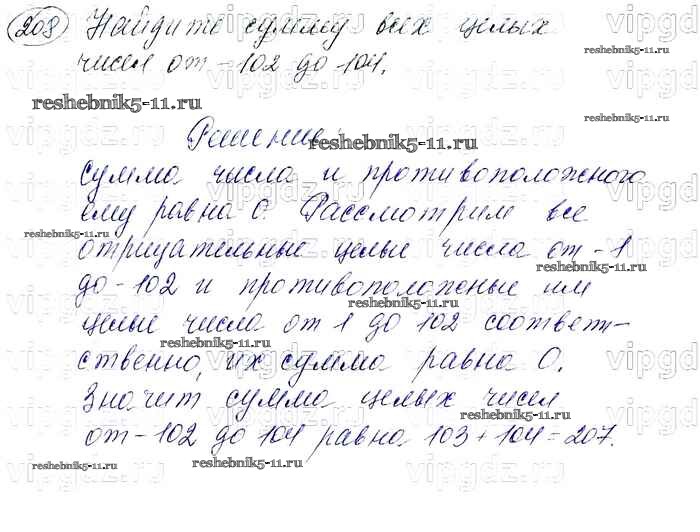 208 Найдите сумму всех целых
чисел от -102 до 104.
reshebnik5-11.ru
reshebnik5-11.ru
Решение:
reshebnik5-11.ru
сумма числа и противоположного
ему равна 0. Рассмотрим все
reshebnik5-11.ru
отрицательные целые числа от -1
reshebnik5-11.ru
до -102 и противоположные им
reshebnik5-11.ru
целые числа от 1 до 102 соответ-
reshebnik5-11.ru
ственно, их сумма равна 0.
Значит сумма целых чисел
reshebnik5-11.ru
от -102 до 104 равна 103+104=207.
reshebnik5-11.ru
reshebnik5-11.ru